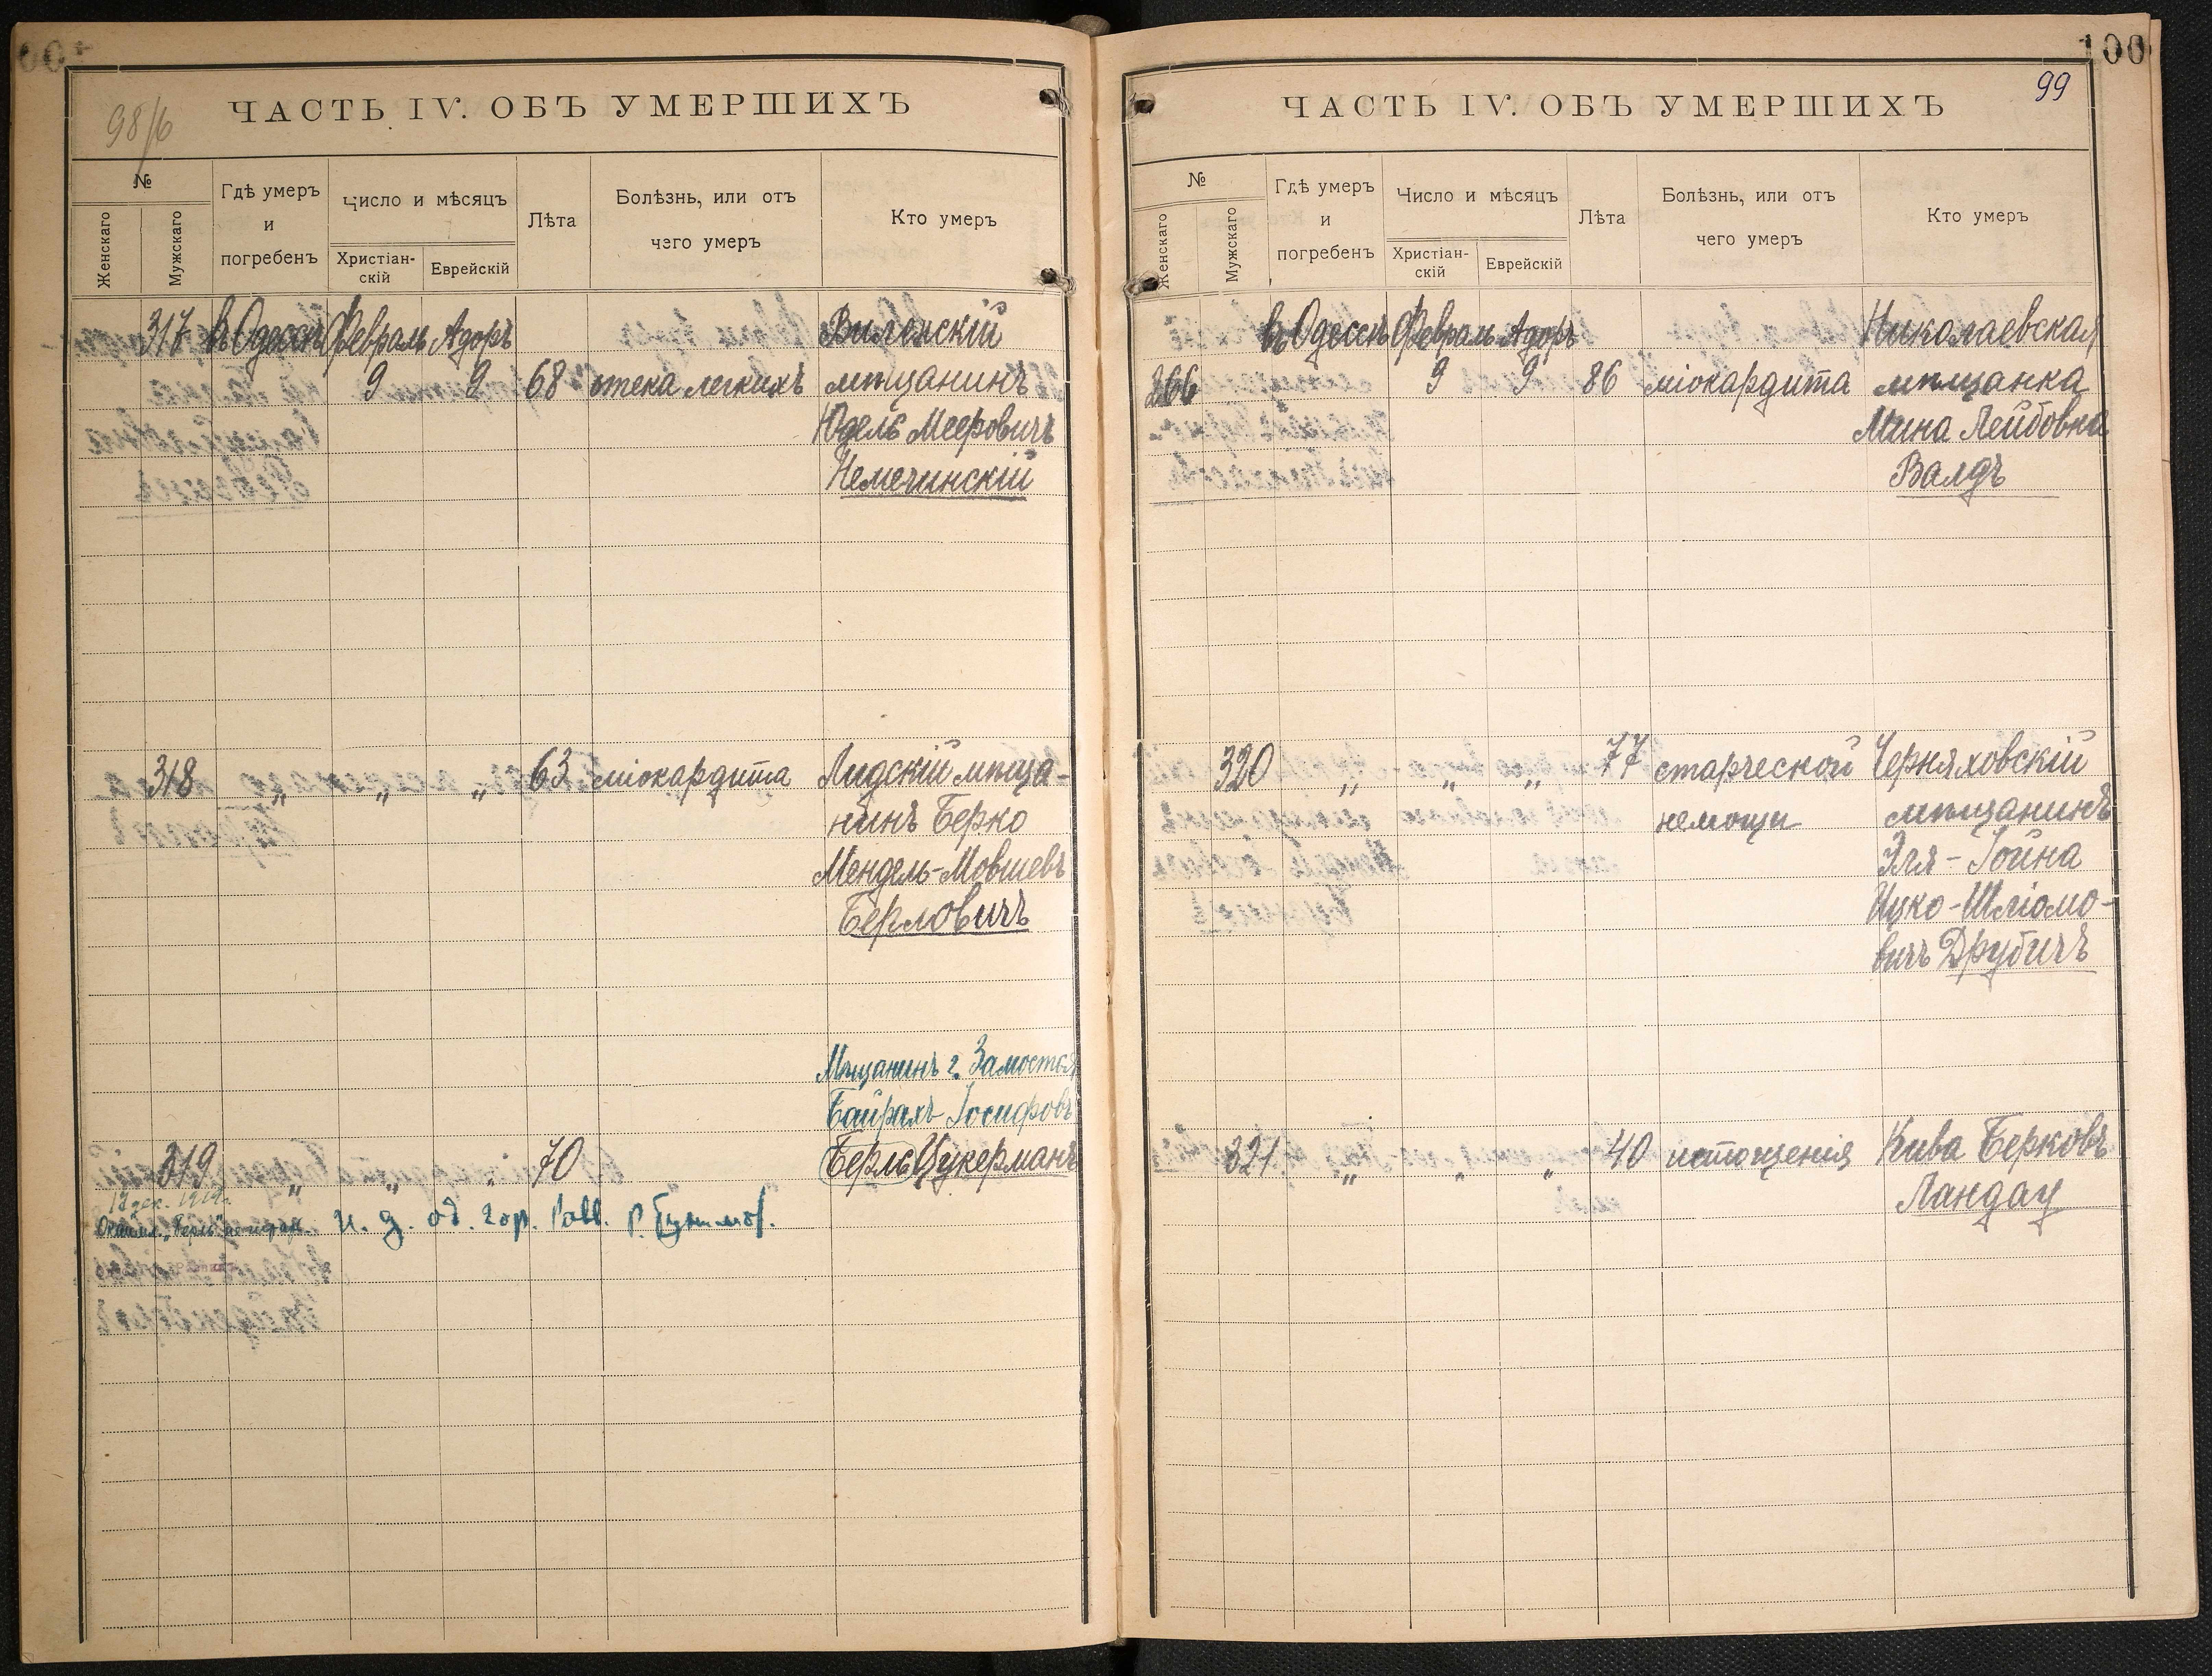 98/6
ЧАСТЬ IV. ОБЪ УМЕРШИХЪ
№
Женскаго
Мужскаго
Гдѣ умеръ
и
погребенъ
Число и мѣсяцъ
Христіан-
скій
Еврейскій
Лѣта
Болѣзнь, или отъ
чего умеръ
Кто умеръ
317 въ Одессѣ Февраль Адоръ Виленскій
9 9 68 отека легкихъ мѣщанинъ
Юдель Мееровичъ
Немечинскій
318 „ „ „ 63 міокардита Лидскій мѣща-
нинъ Берко
Мендель-Мовшевъ
Берловичъ
Мѣщанинъ г. Замостья
Байрахъ Іосифовъ
319 „ „ „ 70 Берль Цукерманъ
и. д. од. гор. Равв.
100
99
ЧАСТЬ IV. ОБЪ УМЕРШИХЪ
№
Женскаго
Мужскаго
Гдѣ умеръ
и
погребенъ
Число и мѣсяцъ
Христіан-
скій
Еврейскій
Лѣта
Болѣзнь, или отъ
чего умеръ
Кто умеръ
въ Одессѣ Февраль Адоръ Николаевская
266 9 9 86 міокардита мѣщанка
Мина Лейбовна
Валдъ
320 „ „ „ 77 старческой Черняховскій
немощи мѣщанинъ
Эля-Іойна
Ицко-Шліомо-
вичъ Друбичъ
321 „ „ „ 40 истощенія Кива Берковъ
Ландау